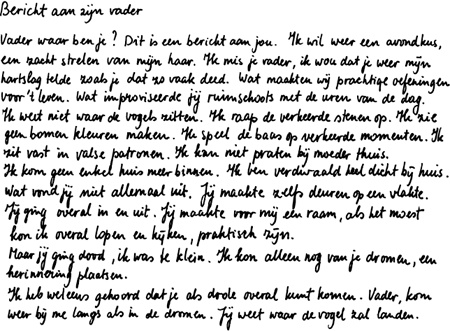 Bericht aan zijn vader
Vader waar ben je? Dit is een bericht aan jou. Ik wil weer een avondkus,
een zacht strelen van mijn haar. Ik mis je vader, ik wou dat je weer mijn
hartslag telde zoals je dat zo vaak deed. Wat maakten wij prachtige oefeningen
voor 't leven. Wat improviseerde jij ruimschoots met de uren van de dag.
Ik weet niet waar de vogels zitten. Ik raap de verkeerde stenen op. Ik zie
geen bomen kleuren maken. Ik speel de baas op verkeerde momenten. Ik
zit vast in valse patronen. Ik kan niet praten bij moeder thuis.
Ik kom geen enkel huis meer binnen. Ik ben verdwaald heel dicht bij huis.
Wat vond jij niet allemaal uit. Jij maakte zelfs deuren op een vlakte.
Jij ging overal in en uit. Jij maakte voor mij een raam, als het moest
kon ik overal lopen en kijken, praktisch zijn.
Maar jij ging dood, ik was te klein. Ik kon alleen nog van je dromen, een
herinnering plaatsen.
Ik heb weleens gehoord dat je als dode overal kunt komen. Vader, kom
weer bij me langs als in de dromen. Jij weet waar de vogel zal landen.